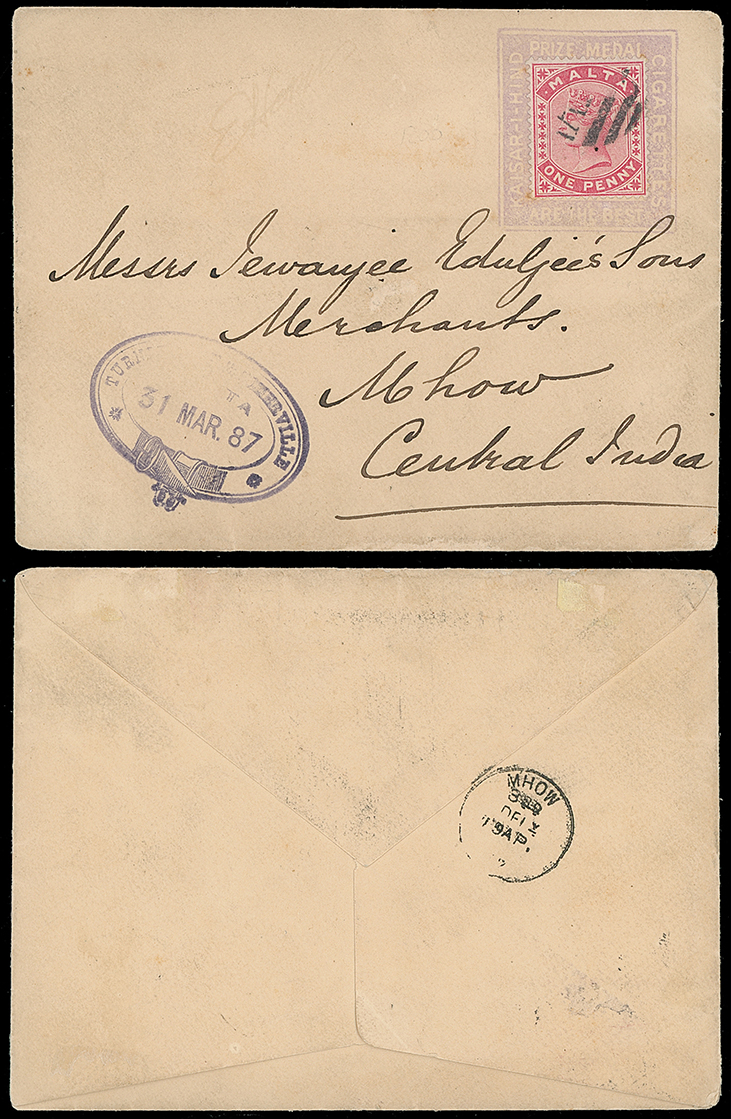 PRIZE MEDAL
KAISAR-I-HIND
CIGARETTES
ARE THE BEST
MALTA
ONE PENNY
Messrs Jewanjee Eduljee's Sons
Merchants.
Mhow
Central India
31 MAR. 87
MHOW
DEL
19AP.